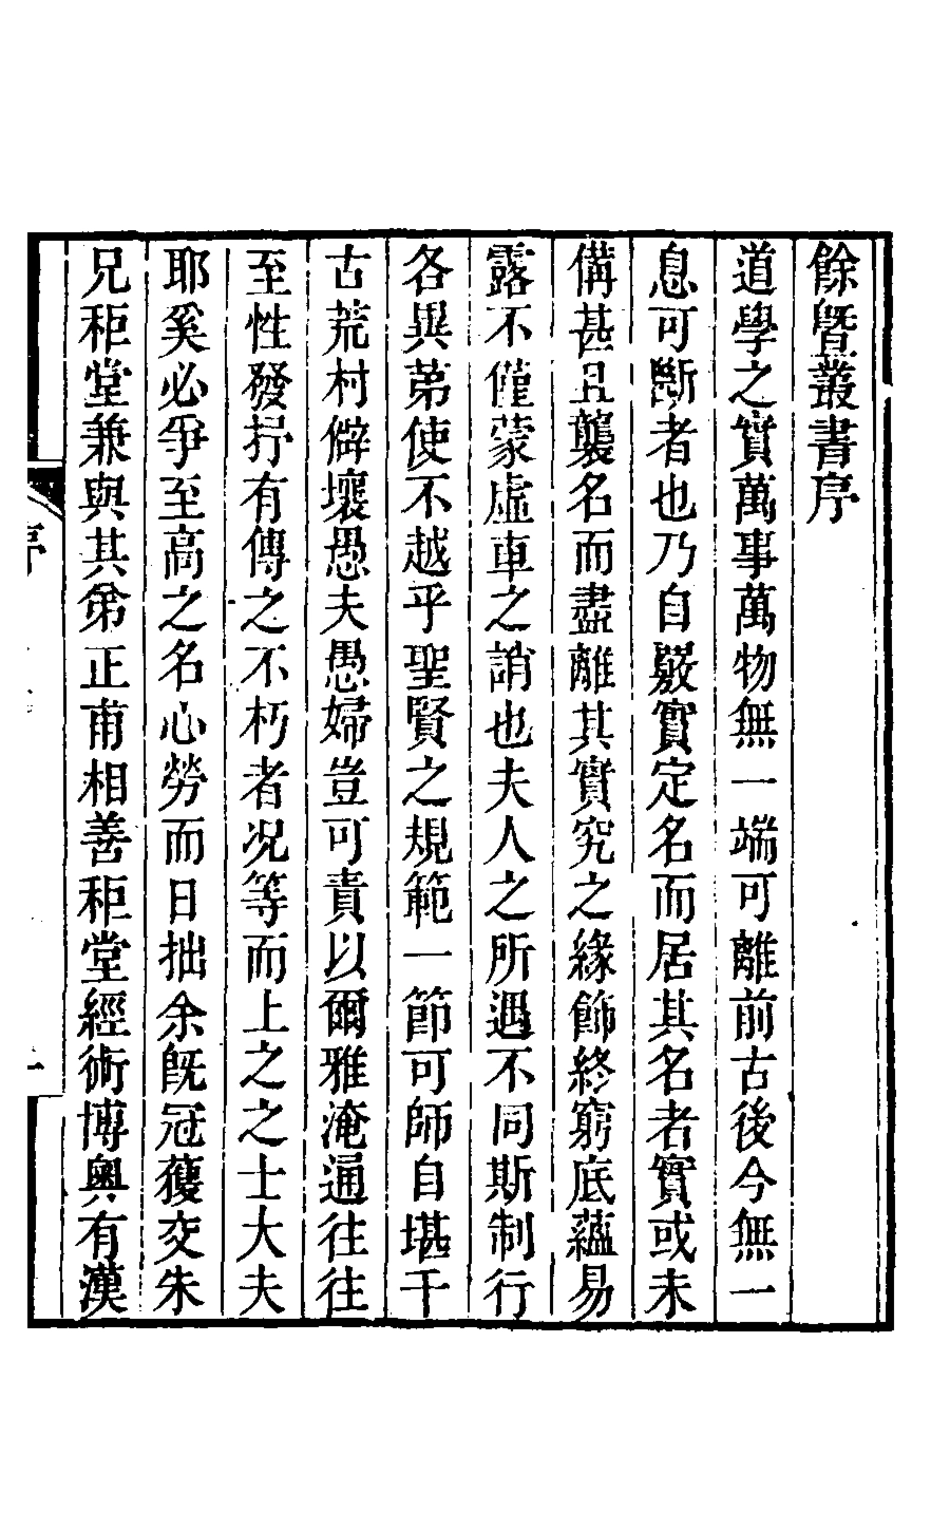 餘曁叢書序
道學之實萬事萬物無一端可離前古後今無一
息可斷者也乃自嚴實定名而居其名者實或未
備甚且襲名而盡離其實究之緣飾終窮底蘊易
露不僅蒙虛車之誚也夫人之所遇不同斯制行
各異苐使不越乎聖賢之規範一節可師自堪千
古荒村僻壤愚夫愚婦豈可責以爾雅淹通往往
至性發抒有傳之不朽者况等而上之之士大夫
耶奚必爭至高之名心勞而日拙余旣冠獲交朱
兄秬堂兼與其弟正甫相善秬堂經術博奧有漢
序
一